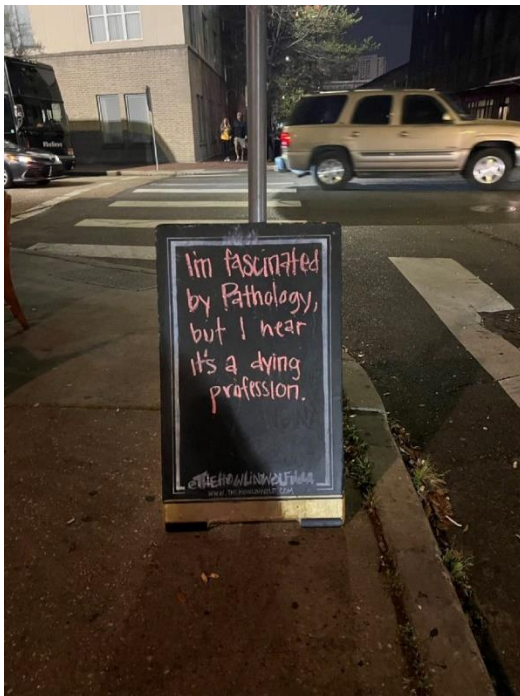 I'm fascinated
by Pathology,
but I hear
it's a dying
profession.
@THEHOWLINWOLFNOLA
WWW.THEHOWLINWOLF.COM